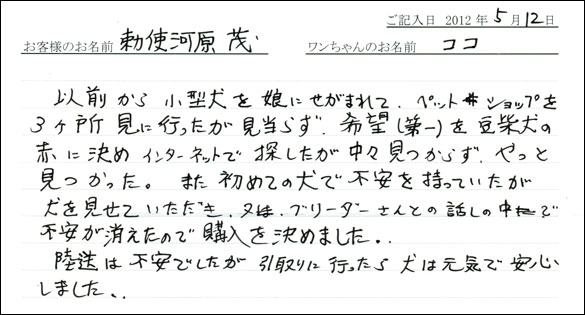 ご記入日 2012 年 5 月 12 日
お客様のお名前 勅使河原 茂 ワンちゃんのお名前 ココ
以前から小型犬を娘にせがまれて、ペットショップを
3ヶ所見に行ったが見当らず、希望(第一)を豆柴犬の
赤に決めインターネットで探したが中々見つからず、やっと
見つかった。また初めての犬で不安を持っていたが
犬を見せていただき、又は、ブリーダーさんとの話しの中で
不安が消えたので購入を決めました。.
陸送は不安でしたが引取りに行ったら犬は元気で安心
しました。.